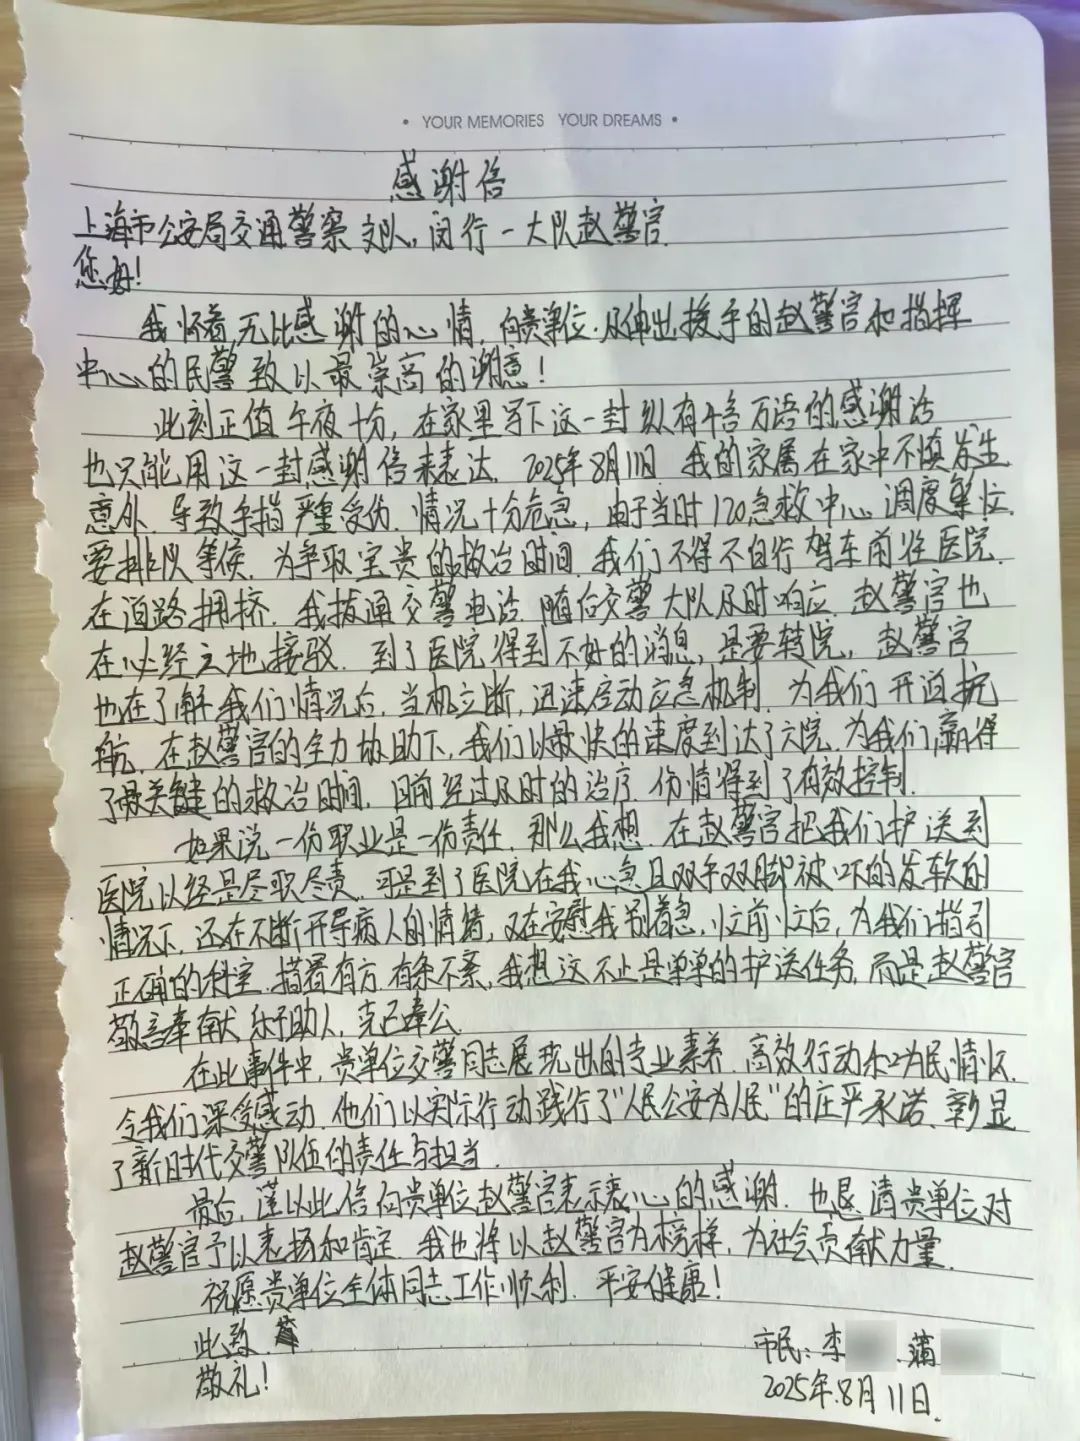 • YOUR MEMORIES YOUR DREAMS •
感谢信
上海市公安局交通警察支队，闵行一大队赵警官
您好！
我怀着无比感谢的心情，向贵单位，及伸出援手的赵警官和指挥
中心的民警致以最崇高的谢意！
此刻正值午夜十分，在家里写下这一封纵有千言万语的感谢话
也只能用这一封感谢信来表达，2025年8月11日，我的家属在家中不慎发生
意外，导致手指严重受伤，情况十分危急，由于当时120急救中心调度繁忙，
要排队等候，为争取宝贵的救治时间，我们不得不自行驾车前往医院，
在道路拥挤，我拨通交警电话，随后交警大队及时响应，赵警官也
在必经之地接驳，到了医院得到不好的消息，是要转院，赵警官
也在了解我们情况后，当机立断，迅速启动应急机制，为我们开道护
航，在赵警官的全力协助下，我们以最快的速度到达了六院，为我们赢得
了最关键的救治时间，目前经过及时的治疗，伤情得到了有效控制，
如果说一份职业是一份责任，那么我想，在赵警官把我们护送到
医院以经是尽职尽责，可是到了医院在我心急且双手双脚被吓的发软的
情况下，还在不断开导病人的情绪，又在安慰我别着急，忙前忙后，为我们指引
正确的科室，措置有方，有条不紊，我想这不止是单单的护送任务，而是赵警官
敬言奉献，乐于助人，克己奉公，
在此事件中，贵单位交警同志展现出的专业素养，高效行动和为民情怀，
令我们深受感动，他们以实际行动践行了"人民公安为人民"的庄严承诺，彰显
了新时代交警队伍的责任与担当，
最后，谨以此信向贵单位赵警官表示衷心的感谢，也恳请贵单位对
赵警官予以表扬和肯定，我也将以赵警官为榜样，为社会贡献力量，
祝愿贵单位全体同志工作顺利，平安健康！
此致
敬礼！
市民：李 蒲
2025年8月11日.